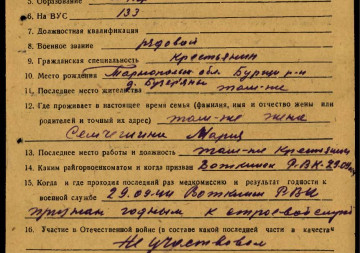 5. Образование
6. На ВУС 133
7. Должностная квалификация
8. Военное звание рядовой
9. Гражданская специальность Крестьянин
10. Место рождения обл. р-н
11. Последнее место жительства д. там-же
12. Где проживает в настоящее время семья (фамилия, имя и отчество жены или
родителей и точный их адрес) там-же жена
Мария
13. Последнее место работы и должность там-же Крестьянин
14. Каким райгорвоенкоматом и когда призван РВК
15. Когда и где проходил последний раз медкомиссию и результат годности к
военной службе 29.09.44 РВК
признан годным к строевой службе
16. Участие в Отечественной войне (в составе какой последней части и качестве
Не участвовал